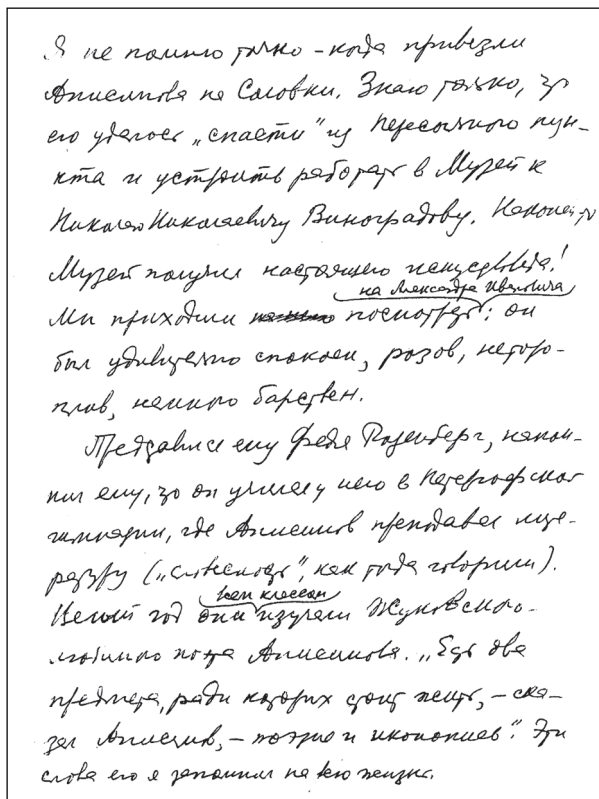 Я не помню точно – когда привезли
Анисимова на Соловки. Знаю только, что
его удалось „спасти“ из Пересыльного пун-
кта и устроить работать в Музей к
Николаю Николаевичу Виноградову. Наконец-то
Музей получил настоящего искусствоведа!
на Александра Ивановича
Мы приходили посмотреть: он
был удивительно спокоен, розов, неторо-
плив, немного барствен.
Представился ему Федя Розенберг, напом-
нил ему, что он учился у него в Петергофской
гимназии, где Анисимов преподавал лите-
ратуру („словесность“, как тогда говорили).
всем классом
Целый год они изучали Жуковского –
любимого поэта Анисимова. „Есть два
предмета, ради которых стоит жить, – ска-
зал Анисимов, – поэзия и иконопись“. Эти
слова его я запомнил на всю жизнь.